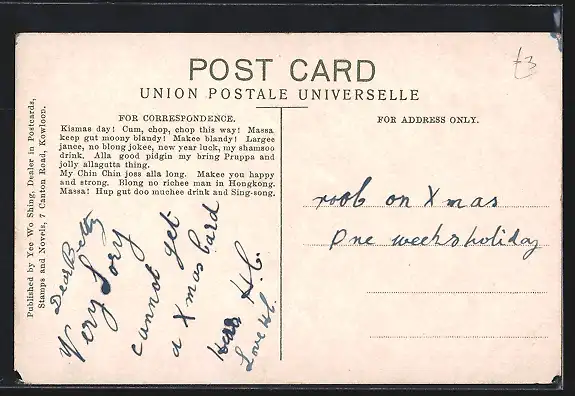 POST CARD
UNION POSTALE UNIVERSELLE
FOR CORRESPONDENCE.
Kismas day! Cum, chop, chop this way! Massa
keep gut moony blandy! Makee blandy! Largee
jance, no blong jokee, new year luck, my shamsoo
drink. Alla good pidgin my bring Pruppa and
jolly allagutta thing.
My Chin Chin joss alla long. Makee you happy
and strong. Blong no richee man in Hongkong.
Massa! Hup gut doo muchee drink and Sing-song.
Published by Yee Wo Shing, Dealer in Postcards,
Stamps and Novels, 7 Canton Road, Kowloon.
Dear Betty
Very Sory
cannot get
a Xmas Card
H.C.
Love
FOR ADDRESS ONLY.
£3
on Xmas
One weeks holiday